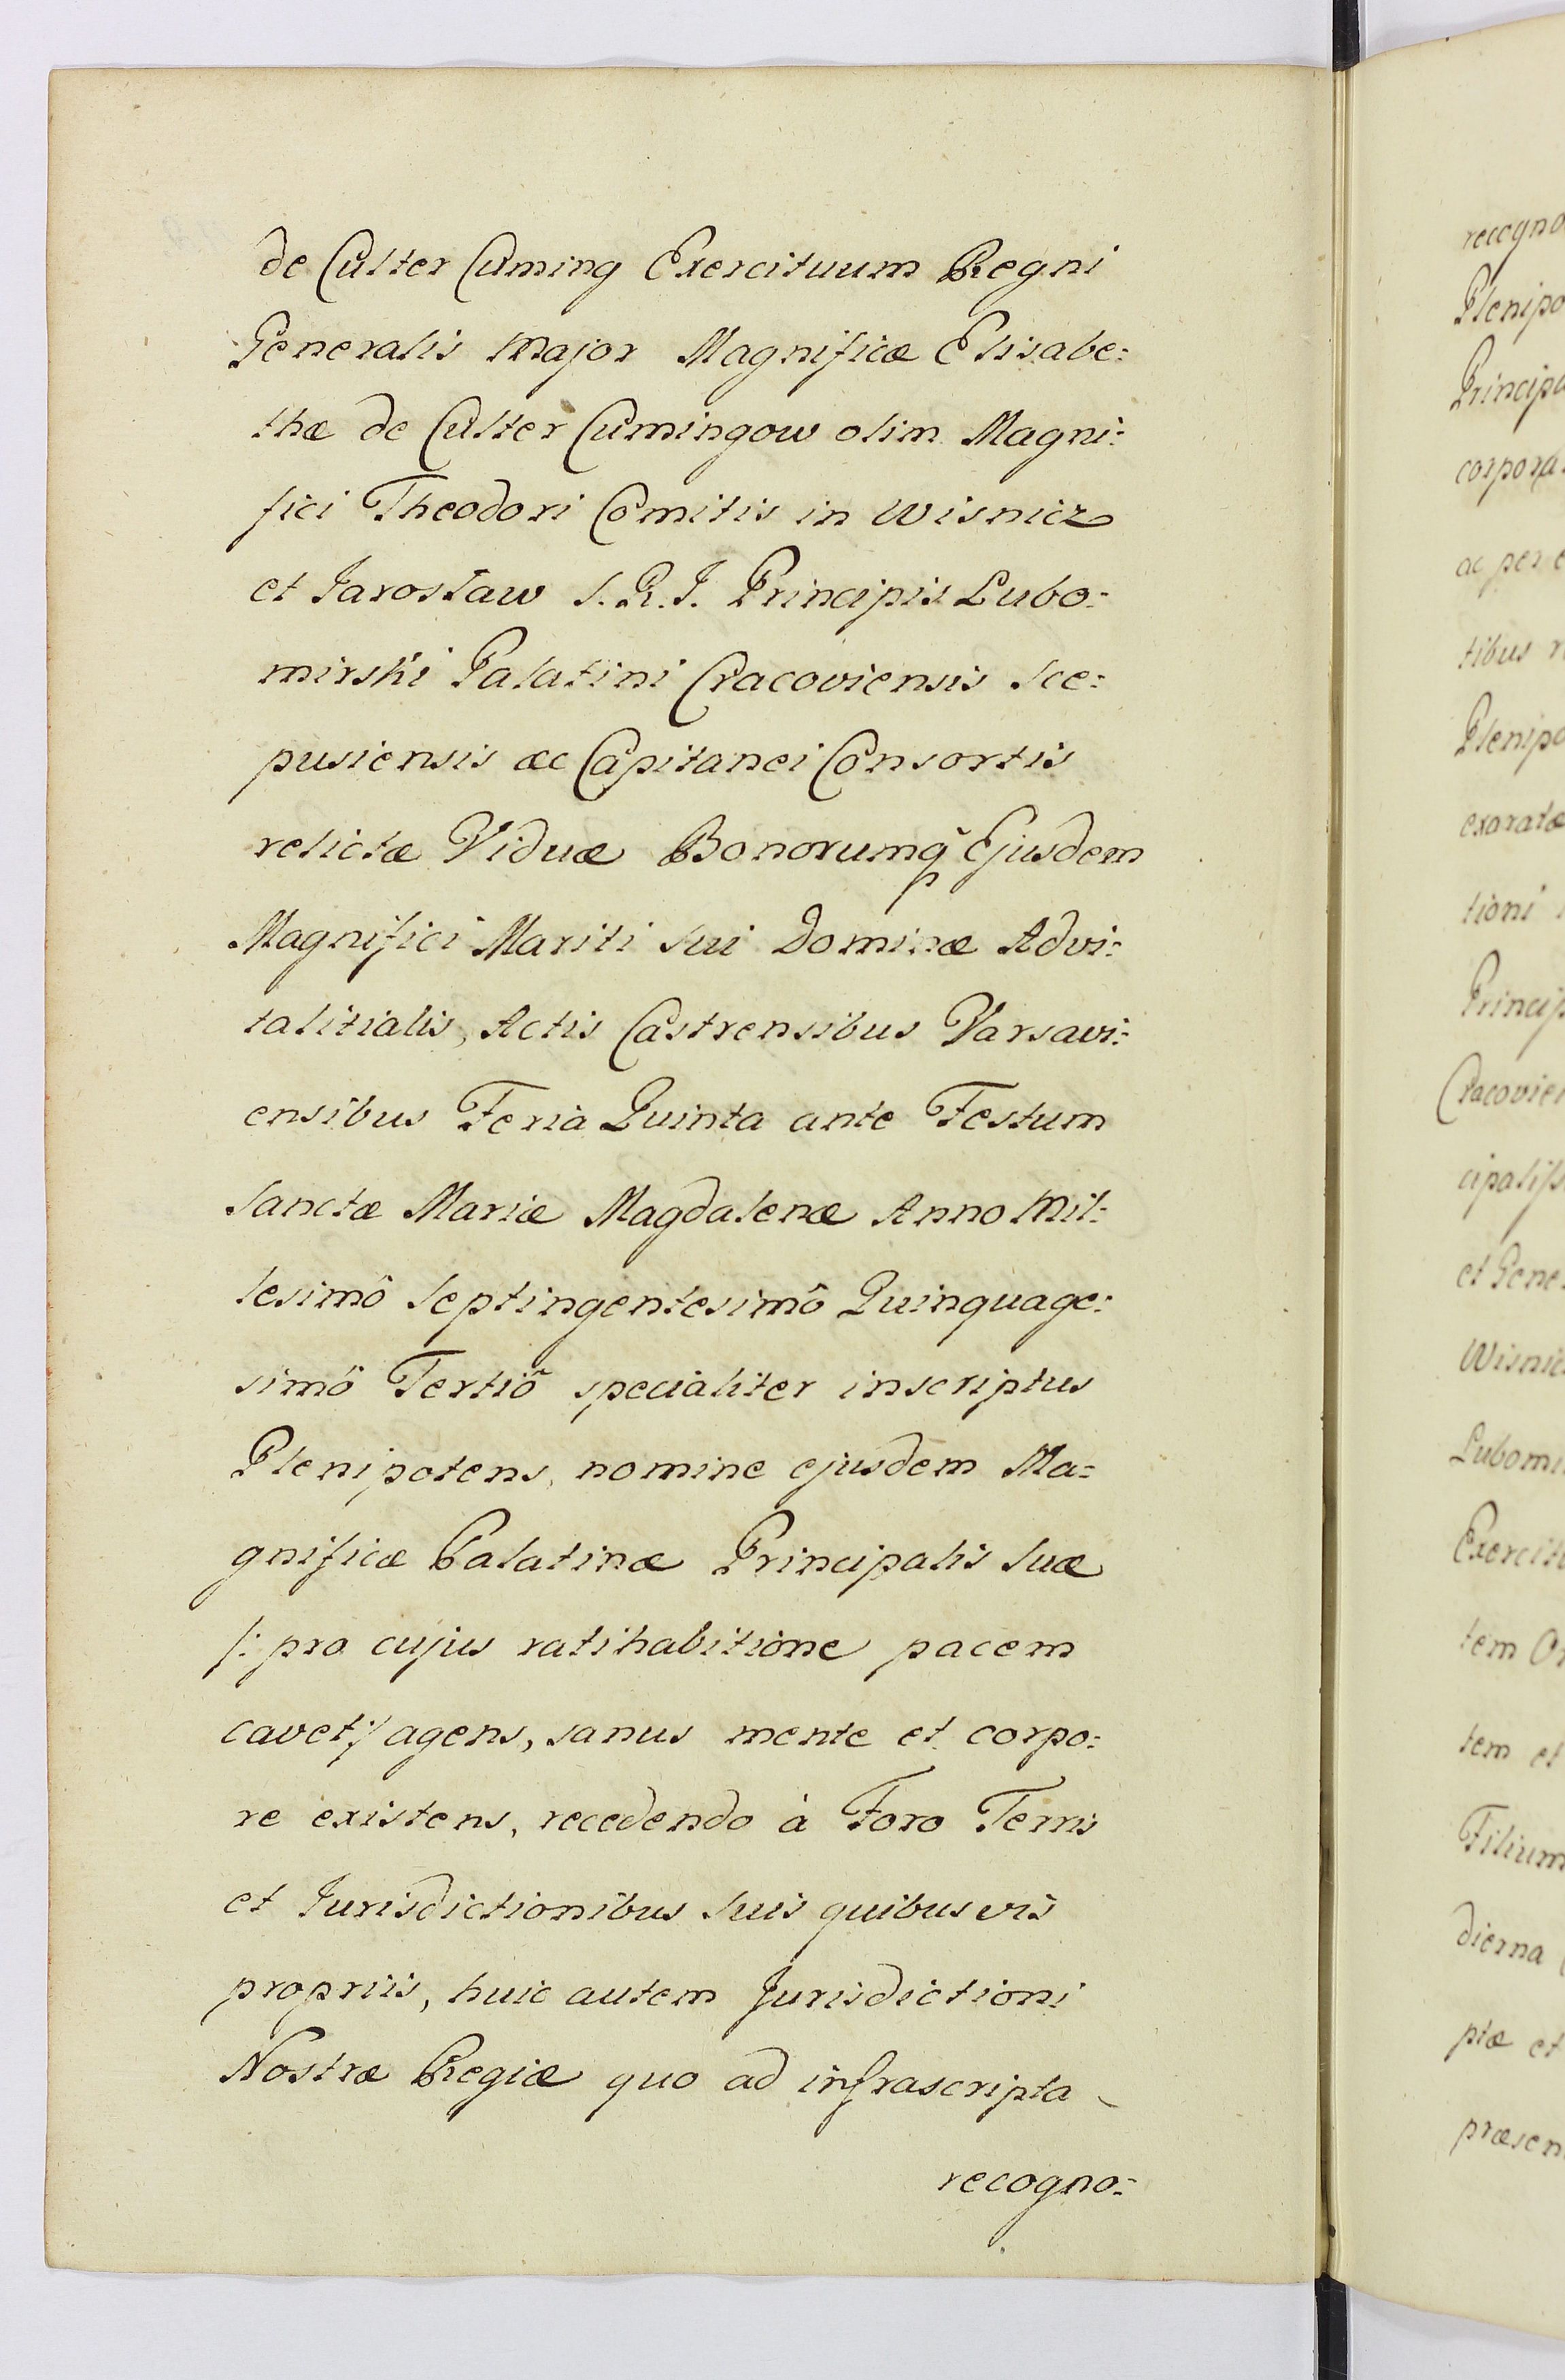 de Culter Cuming Exercituum Regni
Generalis Major Magnificæ Elisabe:
thæ de Culter Cumingow olim Magni:
fici Theodori Comitis in Wisnicz
et Jarosław S. R. I. Principis Lubo:
mirski Palatini Cracoviensis Sce:
pusiensis &c Capitanei Consortis
relictæ Viduæ Bonorumq̃ Ejusdem
Magnifici Mariti Sui Dominæ Advi:
talitialis, Actis Castrensibus Varsavi:
ensibus Feria Quinta ante Festum
Sanctæ Mariæ Magdalenæ Anno Mil:
lesimô Septingentesimô Quinquage:
simô Tertiô specialiter inscriptus
Plenipotens, nomine ejusdem Ma=
gnificæ Palatinæ Principalis Suæ
/: pro cujus ratihabitione pacem
cavet :/ agens, sanus mente et corpo:
re existens, recedendo à Foro Terris
et Jurisdictionibus Suis quibusvis
propriis, huic autem Jurisdictioni
Nostræ Regiæ quo ad infrascripta
recogno:
recogno
Plenipo
Princip
corpora
ac per
tibus
Plenipo
exoratæ
tioni
Princip
Cracovien
cipaliss
et Gene
Wisnic
Lubomi
Exercit
tem
tem et
Filium
dierna
ptæ et
præsen